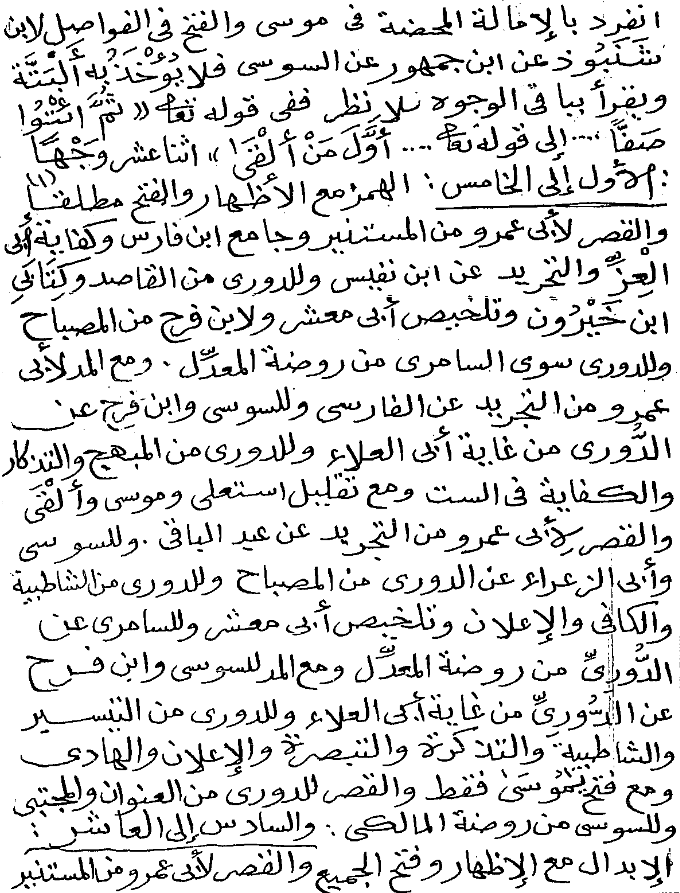 انفرد بالإمالة المحضة فى موسى والفتح فى الفواصل لابن
شَنَبُوذ عن ابن جمهور عن السوسى فلا يُؤْخَذُ به أَلْبَتَّة
ويقرأ بباقى الوجوه بلا نظر ففى قوله تعالى «ثُمَّ ائْتُوا
صَفًّا .... إلى قوله تعالى .... أَوَّلَ مَنْ أَلْقَى» اثنا عشر وَجْهًا
: الأول إلى الخامس : الهمز مع الأظهار والفتح مطلقا (١)
والقصر لأبى عمرو من المستنير وجامع ابن فارس وكفاية أبى
العِزِّ والتجريد عن ابن نفيس وللدورى من القاصد وكِتَابَي
ابن خَيْرُون وتلخيص أبى معشر ولابن فرح من المصباح
وللدورى سوى السامرى من روضة المعدِّل . ومع المد لأبى
عمرو من التجريد عن الفارسى وللسوسى وابن فرح عن
الدُّورى من غاية أبى العلاء وللدورى من المبهج والتذكار
والكفاية فى الست ومع تقليل استعلى وموسى وأَلْقَى
والقصر لِأبى عمرو من التجريد عن عبد الباقى . وللسوسى
وأبى الزعراء عن الدورى من المصباح وللدورى من الشاطبية
والكافى والإعلان وتلخيص أبى معشر وللسامرى عن
الدُّورىِّ من روضة المعدِّل ومع المد للسوسى وابن فرح
عن الدُّورىِّ من غاية أبى العلاء وللدورى من التيسير
والشاطبية والتذكرة والتبصرة والإعلان والهادى
ومع فتح مُوسَىٰ فقط والقصر للدورى من العنوان والمجتبى
وللسوسى من روضة المالكى . والسادس إلى العاشر :
الإبدال مع الإظهار وفتح الجميع والقصر لأبى عمرو من المستنير